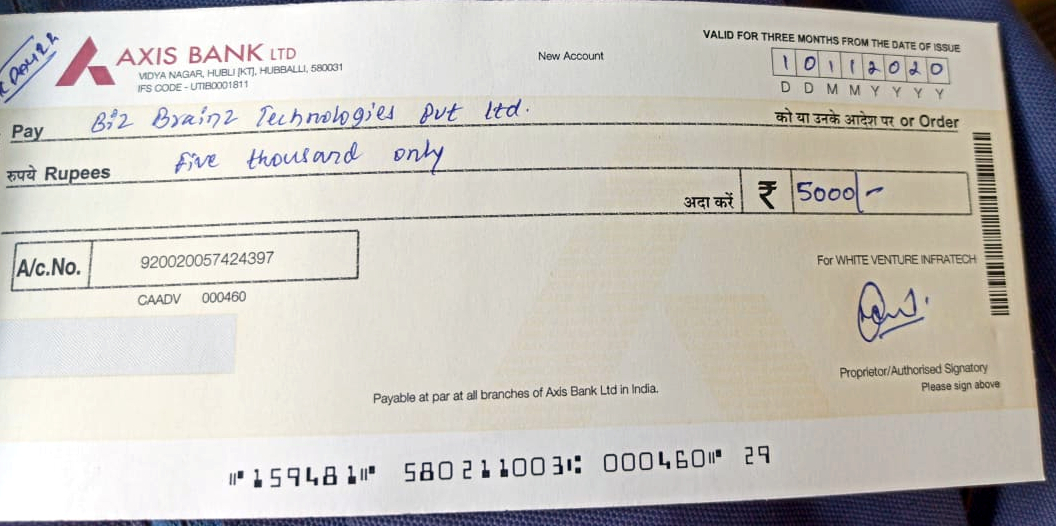 AXIS BANK LTD
VIDYA NAGAR, HUBLI [KT], HUBBALLI, 580031
IFS CODE - UTIB0001811
New Account
VALID FOR THREE MONTHS FROM THE DATE OF ISSUE
10112020
D D M M Y Y Y Y
Pay Biz Brainz Technologies Pvt Ltd. को या उनके आदेश पर or Order
रुपये Rupees Five thousand only
अदा करें ₹ 5000/-
A/c.No. 920020057424397
CAADV 000460
For WHITE VENTURE INFRATECH
Proprietor/Authorised Signatory
Please sign above
Payable at par at all branches of Axis Bank Ltd in India.
⑈159481⑈ 580211003⑆ 000460⑈ 29